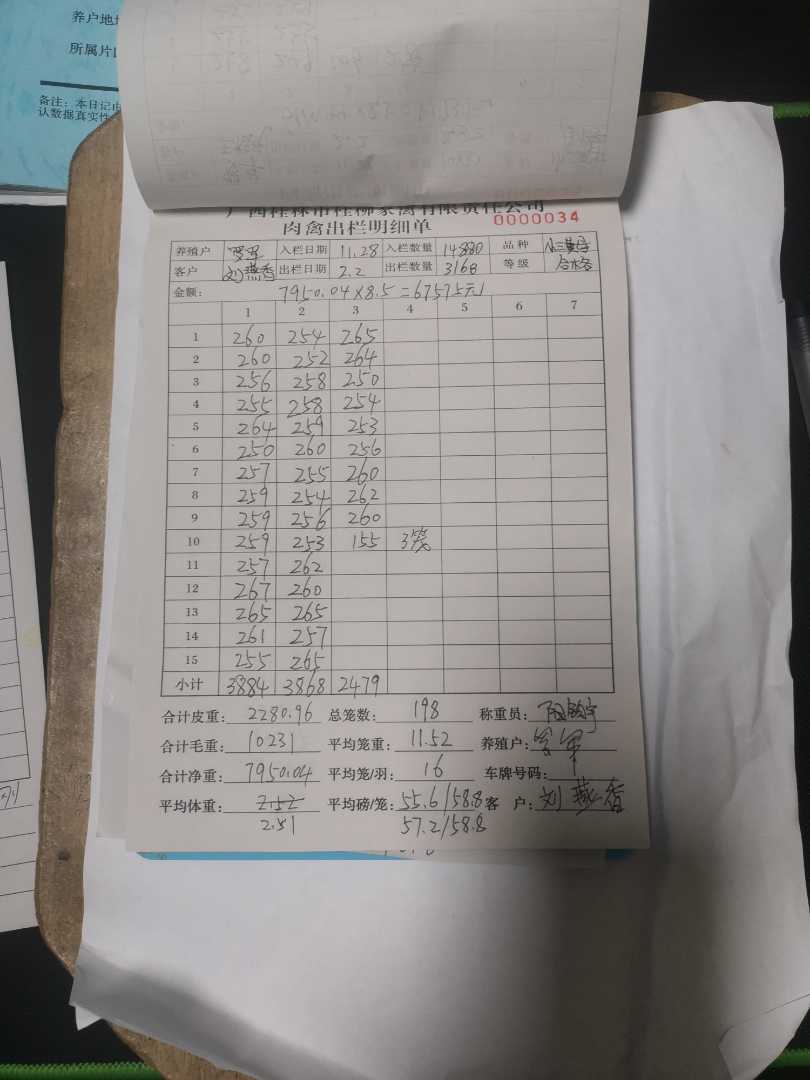 养户地
所属片
备注：本日记
认数据真实性
广西桂林市桂柳家禽有限责任公司
肉禽出栏明细单 0000034
养殖户 入栏日期 11.28 入栏数量 14880 品种
客户 刘燕香 出栏日期 2.2 出栏数量 3168 等级 合格
金额： 7950.04×8.5=67575元
1 2 3 4 5 6 7
1 260 254 265
2 260 252 264
3 256 258 250
4 255 258 254
5 264 259 253
6 250 260 256
7 257 255 260
8 259 254 262
9 259 256 260
10 259 253 155 3笼
11 257 262
12 267 260
13 265 265
14 261 257
15 255 265
小计 3884 3868 2479
合计皮重： 2280.96 总笼数： 198 称重员：
合计毛重： 10231 平均笼重： 11.52 养殖户：
合计净重： 7950.04 平均笼/羽： 16 车牌号码：
平均体重： 2.52 平均磅/笼： 55.6/58.8 客 户： 刘燕香
2.51 57.2/58.8